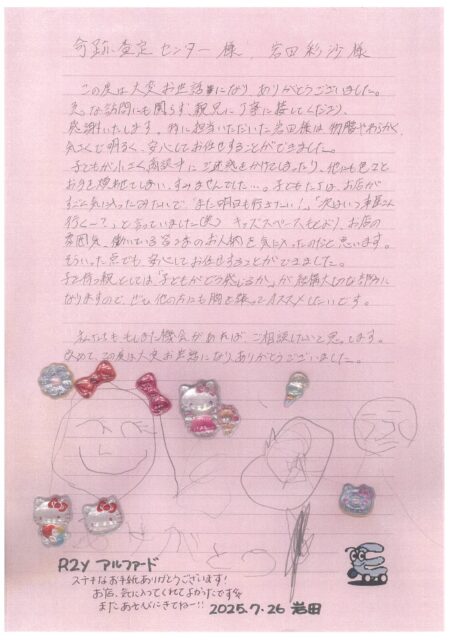 奇跡査定センター様、岩田彩沙様
この度は大変お世話になり、ありがとうございました。
急な訪問にも関らず親兄に丁寧に接してくださり、
感謝いたします。特に担当いただいた岩田様は物腰やわらかく、
気さくで明るく、安心してお任せすることができました。
子どもが小さく商談中にご迷惑をかけてしまったり、他にも色々と
お手を煩わせてしまい、すみませんでした…。子どもたちは、お店が
すごく気に入ったみたいで「また明日も行きたい!」「次はいつ車屋さん
行くー?」と言っていました(笑) キッズスペースもそうですが、お店の
雰囲気、働いている皆さまのお人柄を気に入ったのだと思います。
そういった点でも、安心してお任せすることができました。
子を持つ親としては「子どもがどう感じるか」が結構大切な部分に
なりますので、ぜひ他の方にも胸を張ってオススメしたいです。
私たちももしまた機会があれば、ご相談したいと思います。
改めて、この度は大変お世話になりありがとうございました。
R2y アルファード
ステキなお手紙ありがとうございます!
お店、気に入ってくれてよかったです
またあそびにきてねー!!
2025.7.26 岩田